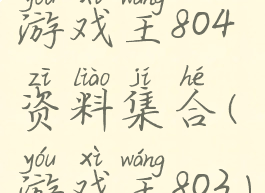 yóu xì wáng
游戏王804
zī liào jí hé
资料集合(
yóu xì wáng
游戏王803)